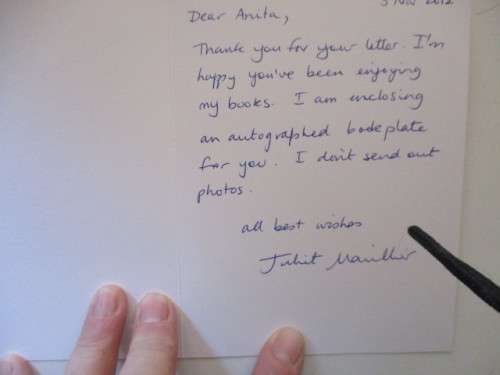 5 Nov 2012
Dear Anita,
Thank you for your letter. I'm
happy you've been enjoying
my books. I am enclosing
an autographed bookplate
for you. I don't send out
photos.
all best wishes
Juliet Marillier